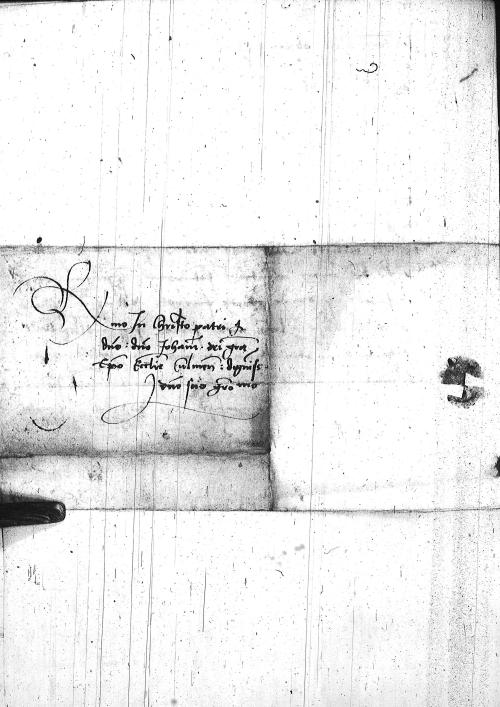 Rmo In Christo patri et
dno dno Johann: dei gra
Epo Ecclie Culmen: digniss:
dno suo gro mo